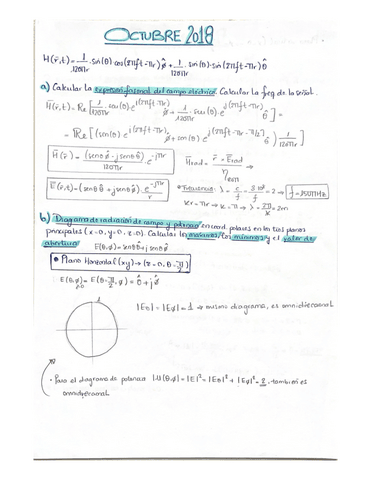 OCTUBRE 2018
H(r̄,t) = 1/120πr · sin(θ)·cos(2πft-πr) φ̂ + 1/120πr · sin(θ)·sin(2πft-πr) θ̂
a) Calcular la expresión fasorial del campo eléctrico. Calcular la freq de la señal.
H̄(r̄,t) = Re[ 1/120πr · sin(θ)·e^j(2πft-πr) φ̂ + 1/120πr · sin(θ)·e^j(2πft-πr) θ̂ ] =
= Re[ (sin(θ) e^j(2πft-πr) φ̂ + sin(θ) e^j(2πft-πr-π/2) θ̂ ) 1/120πr ]
H̄(r̄) = (senθ φ̂ - j senθ θ̂) e^-jπr / 120πr
H̄rad = r̂ × Ērad / η →
Ē(r̄,t) = (senθ θ̂ + j senθ φ̂) · e^-jπr / r
• Frecuencia: λ = c/f = 3·10⁸/f = 2 → f = 150MHz
kr = πr → k = π → λ = 2π/k = 2m
b) Diagrama de radiación de campo y potencia en coord polares en los tres planos
principales (x=0, y=0, z=0). Calcular los máximos/los mínimos y el valor de
abertura
E(θ,φ) = senθ θ̂ + j senθ φ̂
• Plano Horizontal (xy) → (z=0, θ=π/2)
E(θ,φ) = E(θ=π/2, φ) = θ̂ + j φ̂
|Eθ| = |Eφ| = 1 → mismo diagrama, es omnidireccional
• Para el diagrama de potencia |U(θ,φ)| = |E|² = |Eθ|² + |Eφ|² = 2, también es
omnidireccional